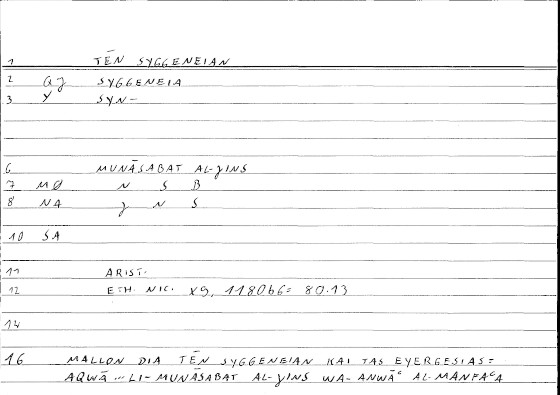 1 TĒN SYGGENEIAN
2 GJ SYGGENEIA
3 Y SYN-
6 MUNĀSABAT AL-ǧINS
7 MØ N S B
8 NA ǧ N S
10 SA
11 ARIST.
12 ETH. NIC. X9, 1180b6= 80.13
14
16 MALLON DIA TĒN SYGGENEIAN KAI TAS EYERGESIAS=
AQWĀ ... LI-MUNĀSABAT AL-ǧINS WA-ANWĀʿ AL-MANFAʿA